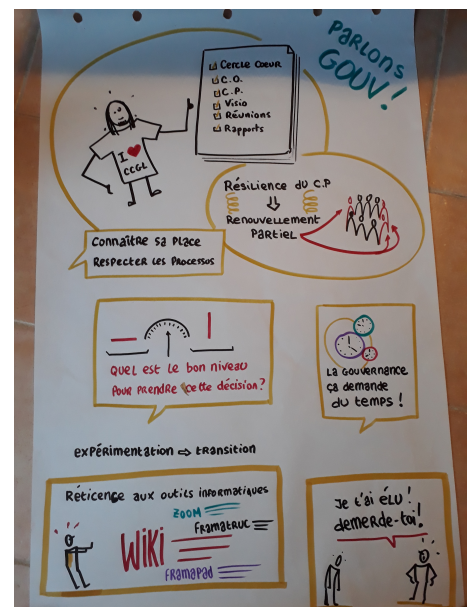 PARLONS
GOUV!
Cercle Coeur
C.O.
C.P.
Visio
Réunions
Rapports
I ❤
CCGL
Résilience du C.P
⇓
Renouvellement
Partiel
Connaître sa place
Respecter les processus
Quel est le bon niveau
pour prendre cette décision?
La Gouvernance
ça demande
du temps!
expérimentation ⇨ transition
Réticence aux outils informatiques
ZOOM
Framatruc
WiKi
Framapad
Je t'ai ÉLU!
demerde-toi!